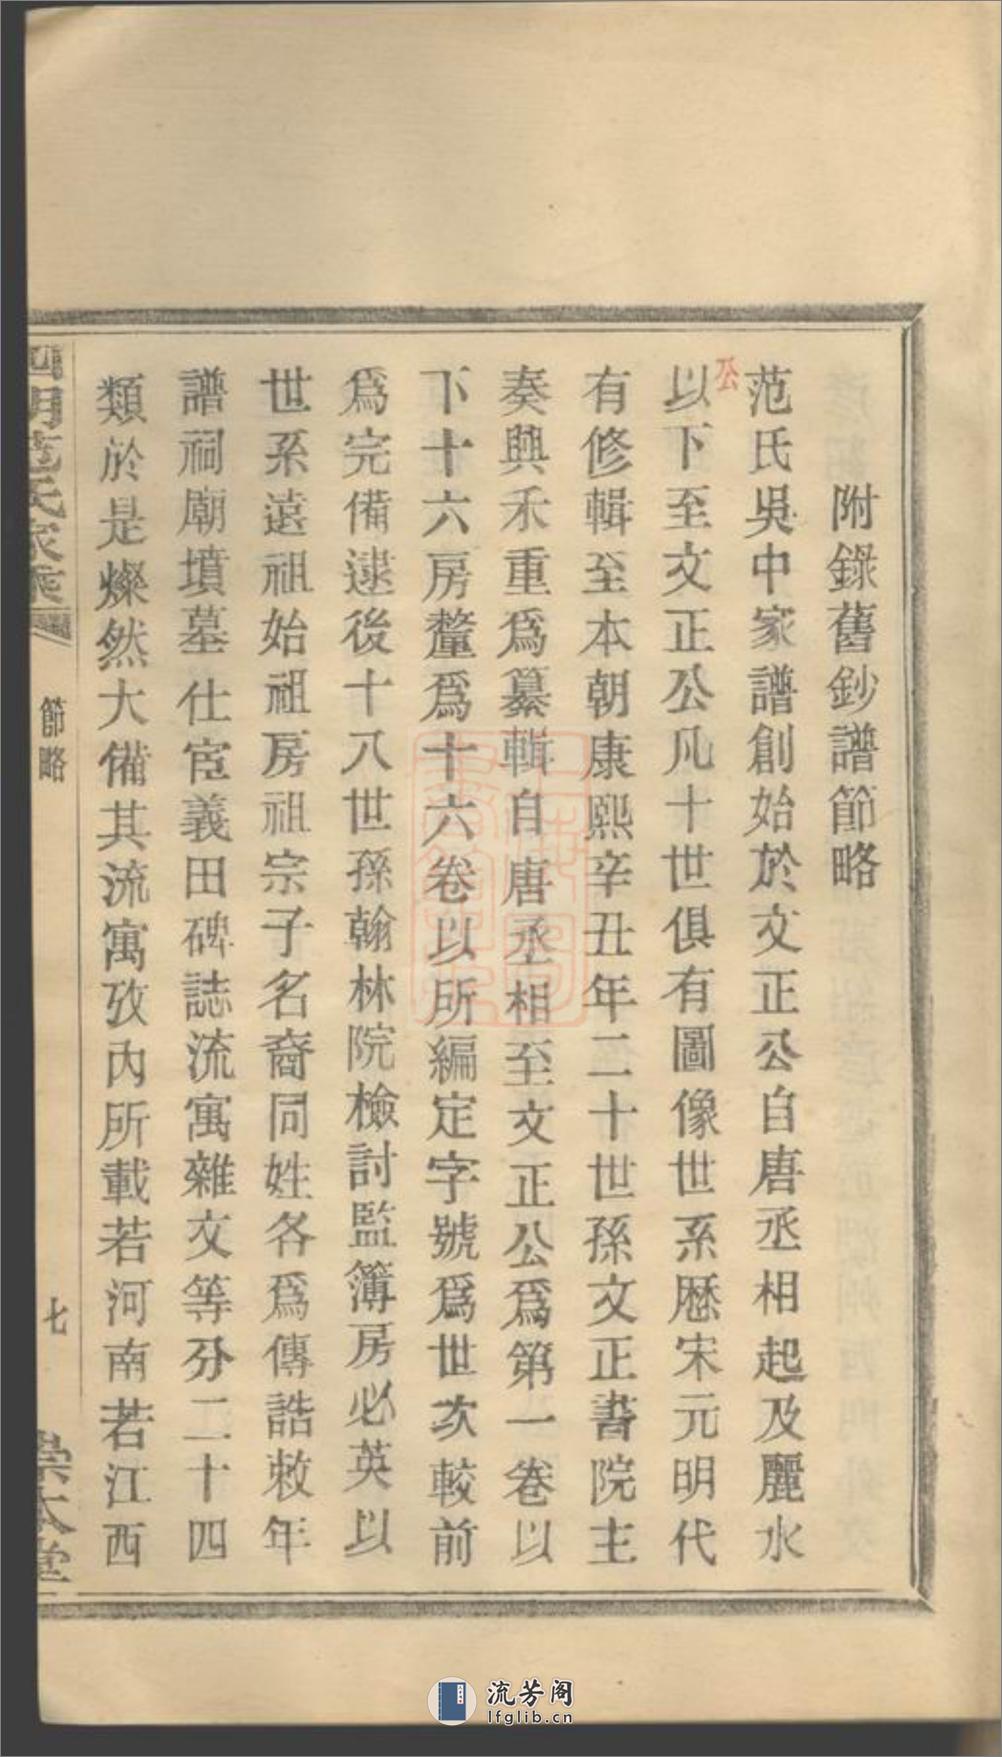 附錄舊鈔譜節略
范氏吳中家譜創始於文正公自唐丞相起及麗水
公
以下至文正公凡十世俱有圖像世系歷宋元明代
有修輯至本朝康熙辛丑年二十世孫文正書院主
奏興禾重爲纂輯自唐丞相至文正公爲第一卷以
下十六房釐爲十六卷以所編定字號爲世次較前
爲完備逮後十八世孫翰林院檢討監簿房必英以
世系遠祖始祖房祖宗子名裔同姓各爲傳誥敕年
譜祠廟墳墓仕宦義田碑誌流寓雜文等分二十四
類於是燦然大備其流寓攷內所載若河南若江西
四明范氏家乘
節略
七
崇本堂
流芳阁
lfglib.cn